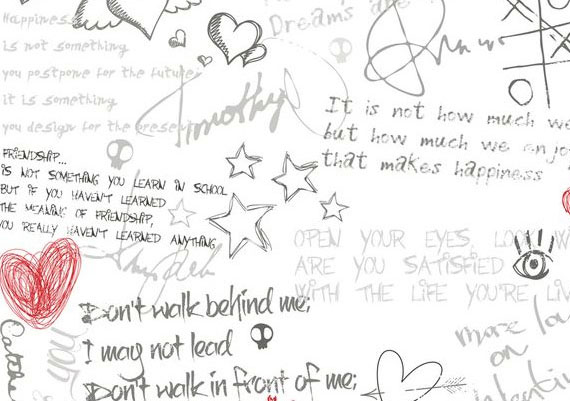 Happiness
is not something
you postpone for the future;
it is something
you design for the present
Dreams are
Timothy
It is not how much we
but how much we enjoy
that makes happiness
FRIENDSHIP...
IS NOT SOMETHING YOU LEARN IN SCHOOL
BUT IF YOU HAVEN'T LEARNED
THE MEANING OF FRIENDSHIP,
YOU REALLY HAVEN'T LEARNED ANYTHING
OPEN YOUR EYES, LOOK
ARE YOU SATISFIED
WITH THE LIFE YOU'RE
Don't walk behind me;
I may not lead
Don't walk in front of me;
more
on